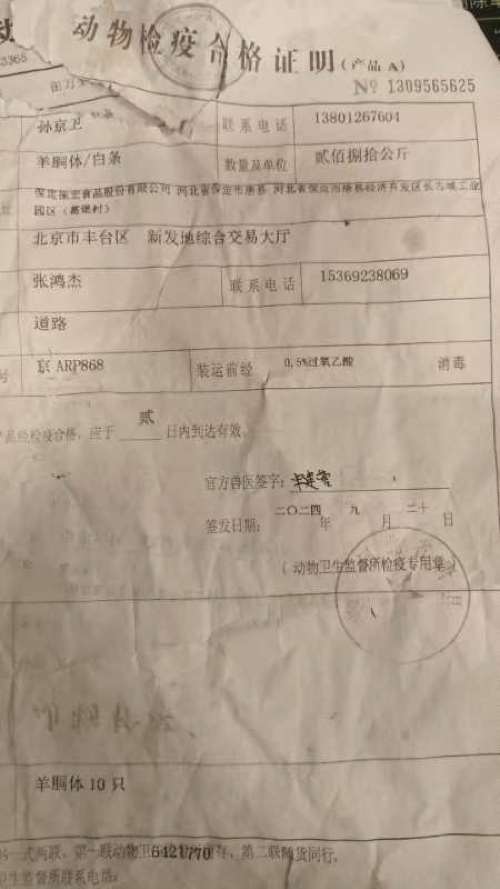 动物检疫合格证明(产品 A)
3365
№ 1309565625
孙京卫 联系电话 13801267604
羊胴体/白条 数量及单位 贰佰捌拾公斤
保定振宏食品股份有限公司 河北省保定市唐县 河北省保定市唐县经济开发区长古城工业
园区(葛堡村)
北京市丰台区 新发地综合交易大厅
张鸿杰 联系电话 15369238069
道路
号 京 ARP868 装运前经 0.5%过氧乙酸 消毒
产品经检疫合格,应于 贰 日内到达有效。
官方兽医签字:
签发日期: 二〇二四年 九 月 二十 日
(动物卫生监督所检疫专用章)
羊胴体 10 只
一式两联,第一联动物卫 存,第二联随货同行。
6421770
卫生监督所联系电话: